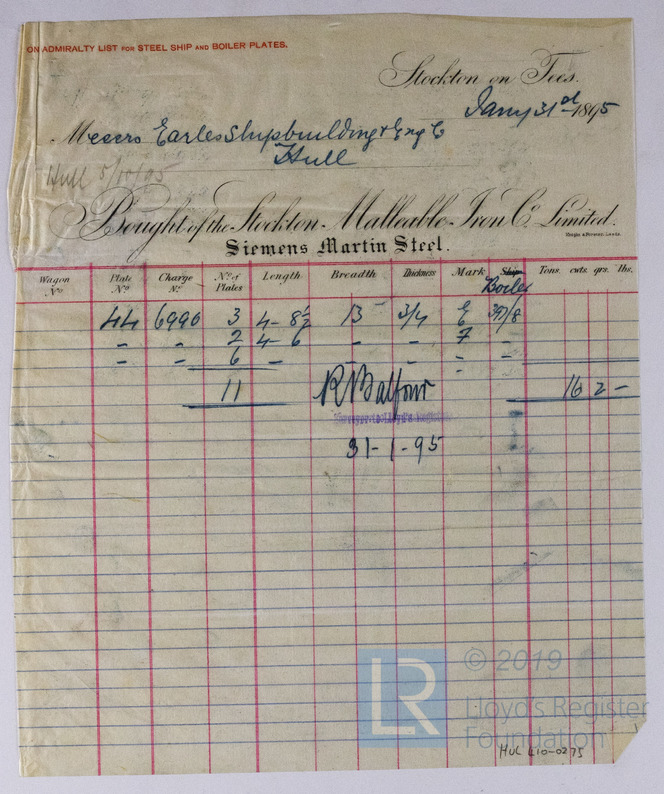 ON ADMIRALTY LIST FOR STEEL SHIP AND BOILER PLATES.
Stockton on Tees.
Jany 31st 1895
Messrs Earles Shipbuilding & Eng Co
Hull
Hull 5/10/95
Bought of the Stockton Malleable Iron Co. Limited.
Siemens Martin Steel.
Wagon No. Plate No. Charge No. No. of Plates Length Breadth Thickness Mark Ship Tons. cwts. qrs. lbs.
Boiler
44 6990 3 4-8½ 13 - 3/4 397/8
- - 2 4-6 - - 7 -
- - 6 - - -
11 R Balfour 16 2 -
Surveyor to Lloyd's Register
31-1-95
© 2019
LR
Lloyd's Register
Foundation
HUL 410-0275